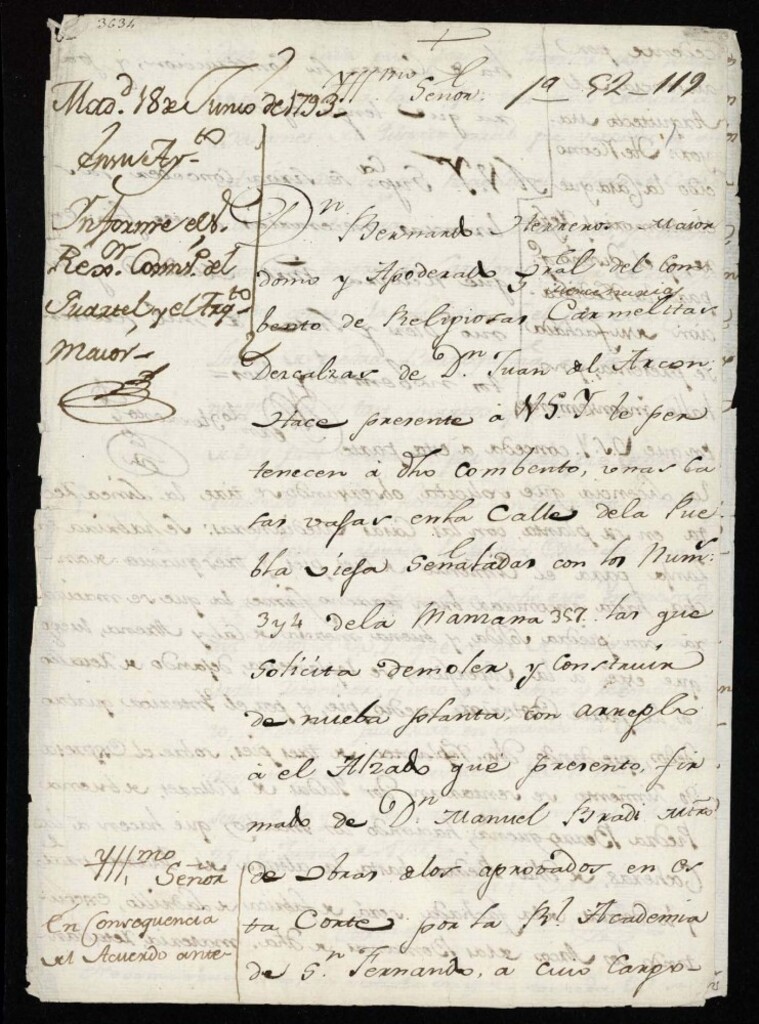 3634
+
Yllmo Señor.
1ª 52-119
Mad.d 18 de Junio de 1793.
En su Ay.to
Informe el S.r
Rex.or Comis.o del
Quartel y el Arq.to
Maior
D.n Bernardo Herreros Maior
domo y Apoderado Gral del Com
bento de Religiosas Mercenarias Carmelitas
Descalzas de D.n Juan de Alarcon
Hace presente à V.S.Y. le per
tenecen à dho Combento, unas ca
sas vajas en la Calle de la Pue
bla Vieja Señaladas con los Nums.
3 y 4 de la Manzana 357. las que
solicita demoler, y construir
de nueba planta, con arreglo
à el Alzado que presento, fir
mado de D.n Manuel Bradi Mtro
de obras de los aprovados en es
ta Corte por la R.l Academia
de S.n Fernando, a cuio Cargo
Yllmo Señor
En Consequencia
del Acuerdo ante-